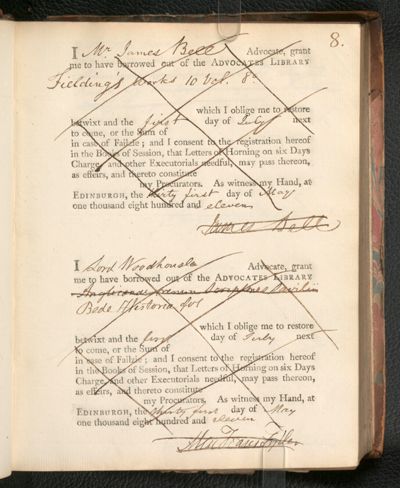 8.
I Mr James Bell Advocate, grant
me to have borrowed out of the ADVOCATES LIBRARY
Fielding's Works 10 vol. 8o
which I oblige me to restore
betwixt and the first day of July next
to come, or the Sum of
in case of Failzie; and I consent to the registration hereof
in the Books of Session, that Letters of Horning on six Days
Charge, and other Executorials needful, may pass thereon,
as effeirs, and thereto constitute
my Procurators. As witness my Hand, at
EDINBURGH, the thirty first day of May
one thousand eight hundred and eleven
James Bell
I Lord Woodhouselee Advocate, grant
me to have borrowed out of the ADVOCATES LIBRARY
Scriptores Savilii
Bedae Historia fol
which I oblige me to restore
betwixt and the first day of July next
to come, or the Sum of
in case of Failzie; and I consent to the registration hereof
in the Books of Session, that Letters of Horning on six Days
Charge, and other Executorials needful, may pass thereon,
as effeirs, and thereto constitute
my Procurators. As witness my Hand, at
EDINBURGH, the thirty first day of May
one thousand eight hundred and eleven
Alex Fraser Tytler